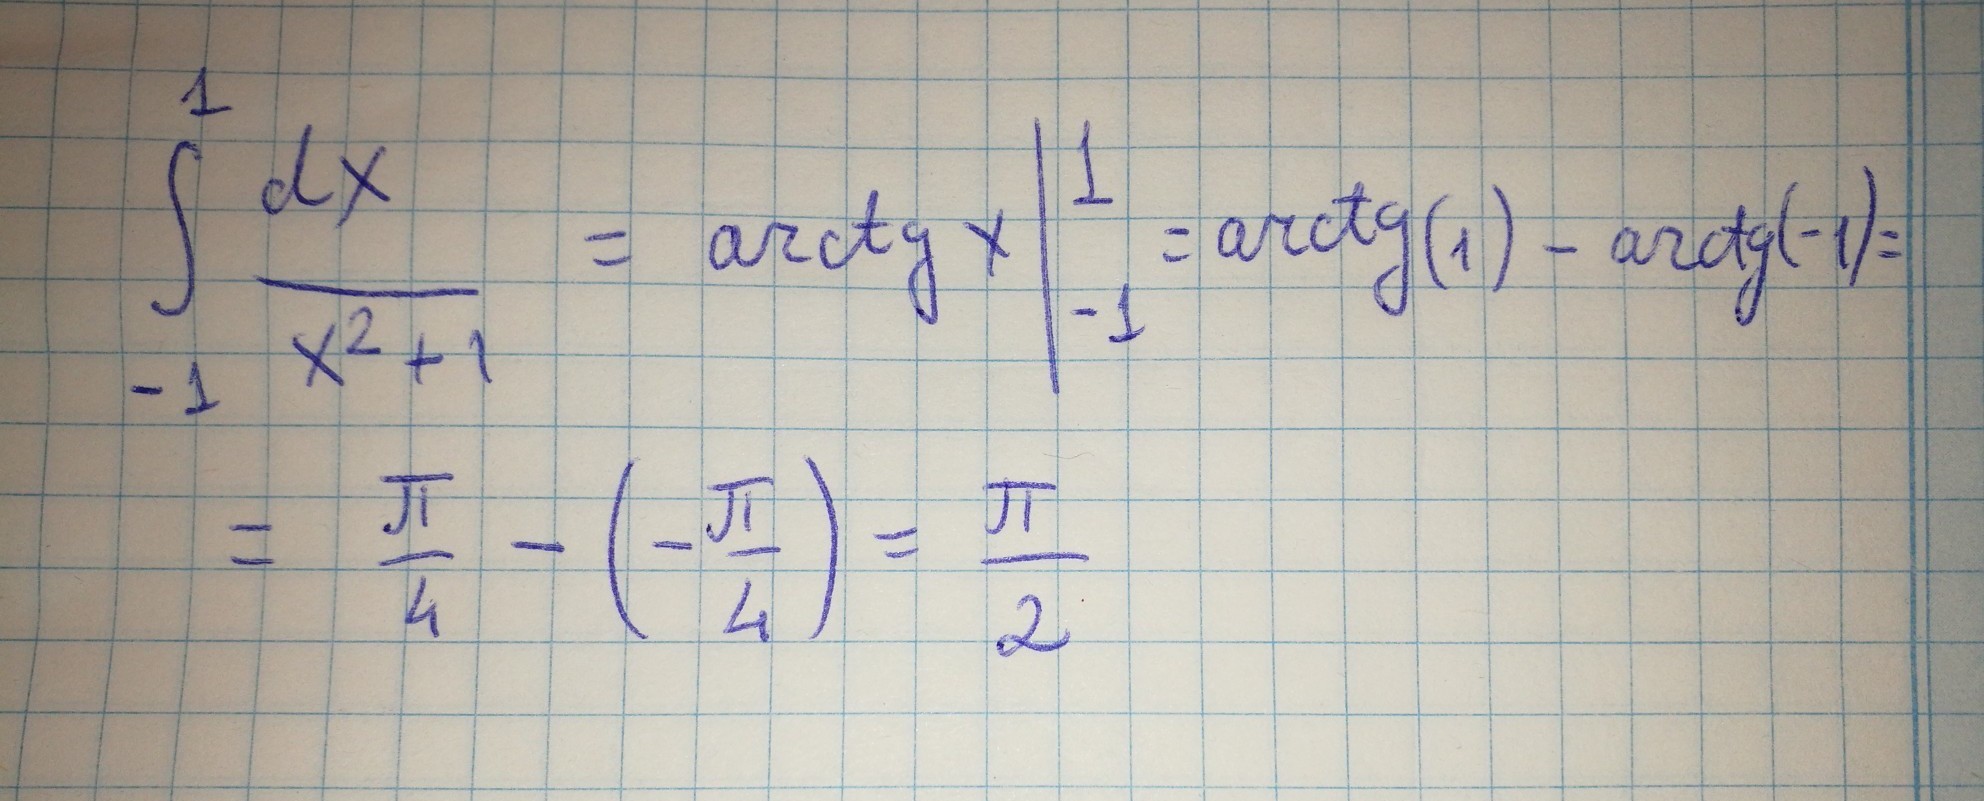 ∫_{-1}^{1} dx/(x²+1) = arctg x |_{-1}^{1} = arctg(1) - arctg(-1) =
= π/4 - (-π/4) = π/2